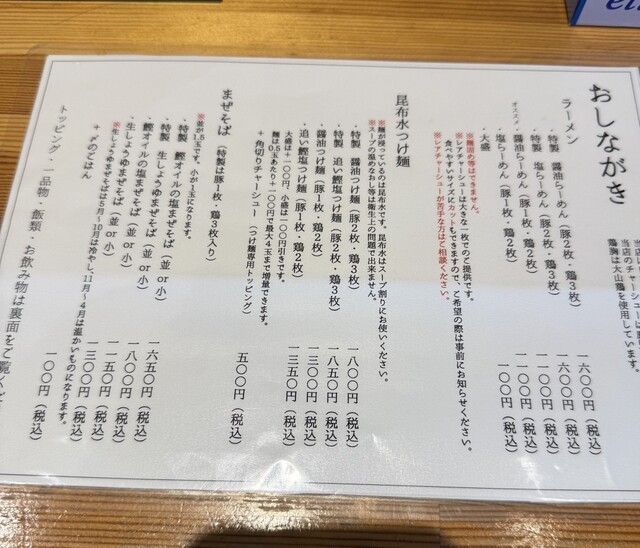 当店のチャーシューは
鶏胸は大山鶏を使用しています。
おしながき
ラーメン
・特製 醤油らーめん（豚2枚・鶏3枚） 一六〇〇円（税込）
・特製 塩らーめん（豚2枚・鶏3枚） 一六〇〇円（税込）
オススメ・醤油らーめん（豚1枚・鶏2枚） 一一〇〇円（税込）
・塩らーめん（豚1枚・鶏2枚） 一一〇〇円（税込）
・大盛 一〇〇円（税込）
※麺固め等はできません。
※レアチャーシューは大きな一枚でのご提供です。
食べやすいサイズにカットもできますので、ご希望の際は事前にお知らせください。
※レアチャーシューが苦手な方はご相談ください。
昆布水つけ麺
※麺が浸っているのは昆布水です。昆布水はスープ割りにお使いください。
※スープの温めなおし等は衛生上の問題で出来ません。
・特製 醤油つけ麺（豚2枚・鶏3枚） 一八〇〇円（税込）
・特製 追い鰹塩つけ麺（豚2枚・鶏3枚） 一八五〇円（税込）
・醤油つけ麺（豚1枚・鶏2枚） 一三〇〇円（税込）
・追い鰹塩つけ麺（豚1枚・鶏2枚） 一三五〇円（税込）
大盛は＋一〇〇円、小盛は一〇〇円引きです。
麺は0.5玉あたり＋一〇〇円で最大4玉まで増量できます。
＋角切りチャーシュー（つけ麺専用トッピング） 五〇〇円（税込）
まぜそば（特製は豚1枚・鶏3枚入り）
※並が1.5玉です。小が1玉になります。
・特製 鰹オイルの塩まぜそば（並 or 小） 一六五〇円（税込）
・特製 生しょうゆまぜそば（並 or 小） 一八〇〇円（税込）
・鰹オイルの塩まぜそば（並 or 小） 一一五〇円（税込）
・生しょうゆまぜそば（並 or 小） 一三〇〇円（税込）
※生しょうゆまぜそばは5月～10月は冷やし、11月～4月は温かいものになります。
＋〆のごはん 一〇〇円（税込）
トッピング・一品物・飯類・お飲み物は裏面をご覧ください